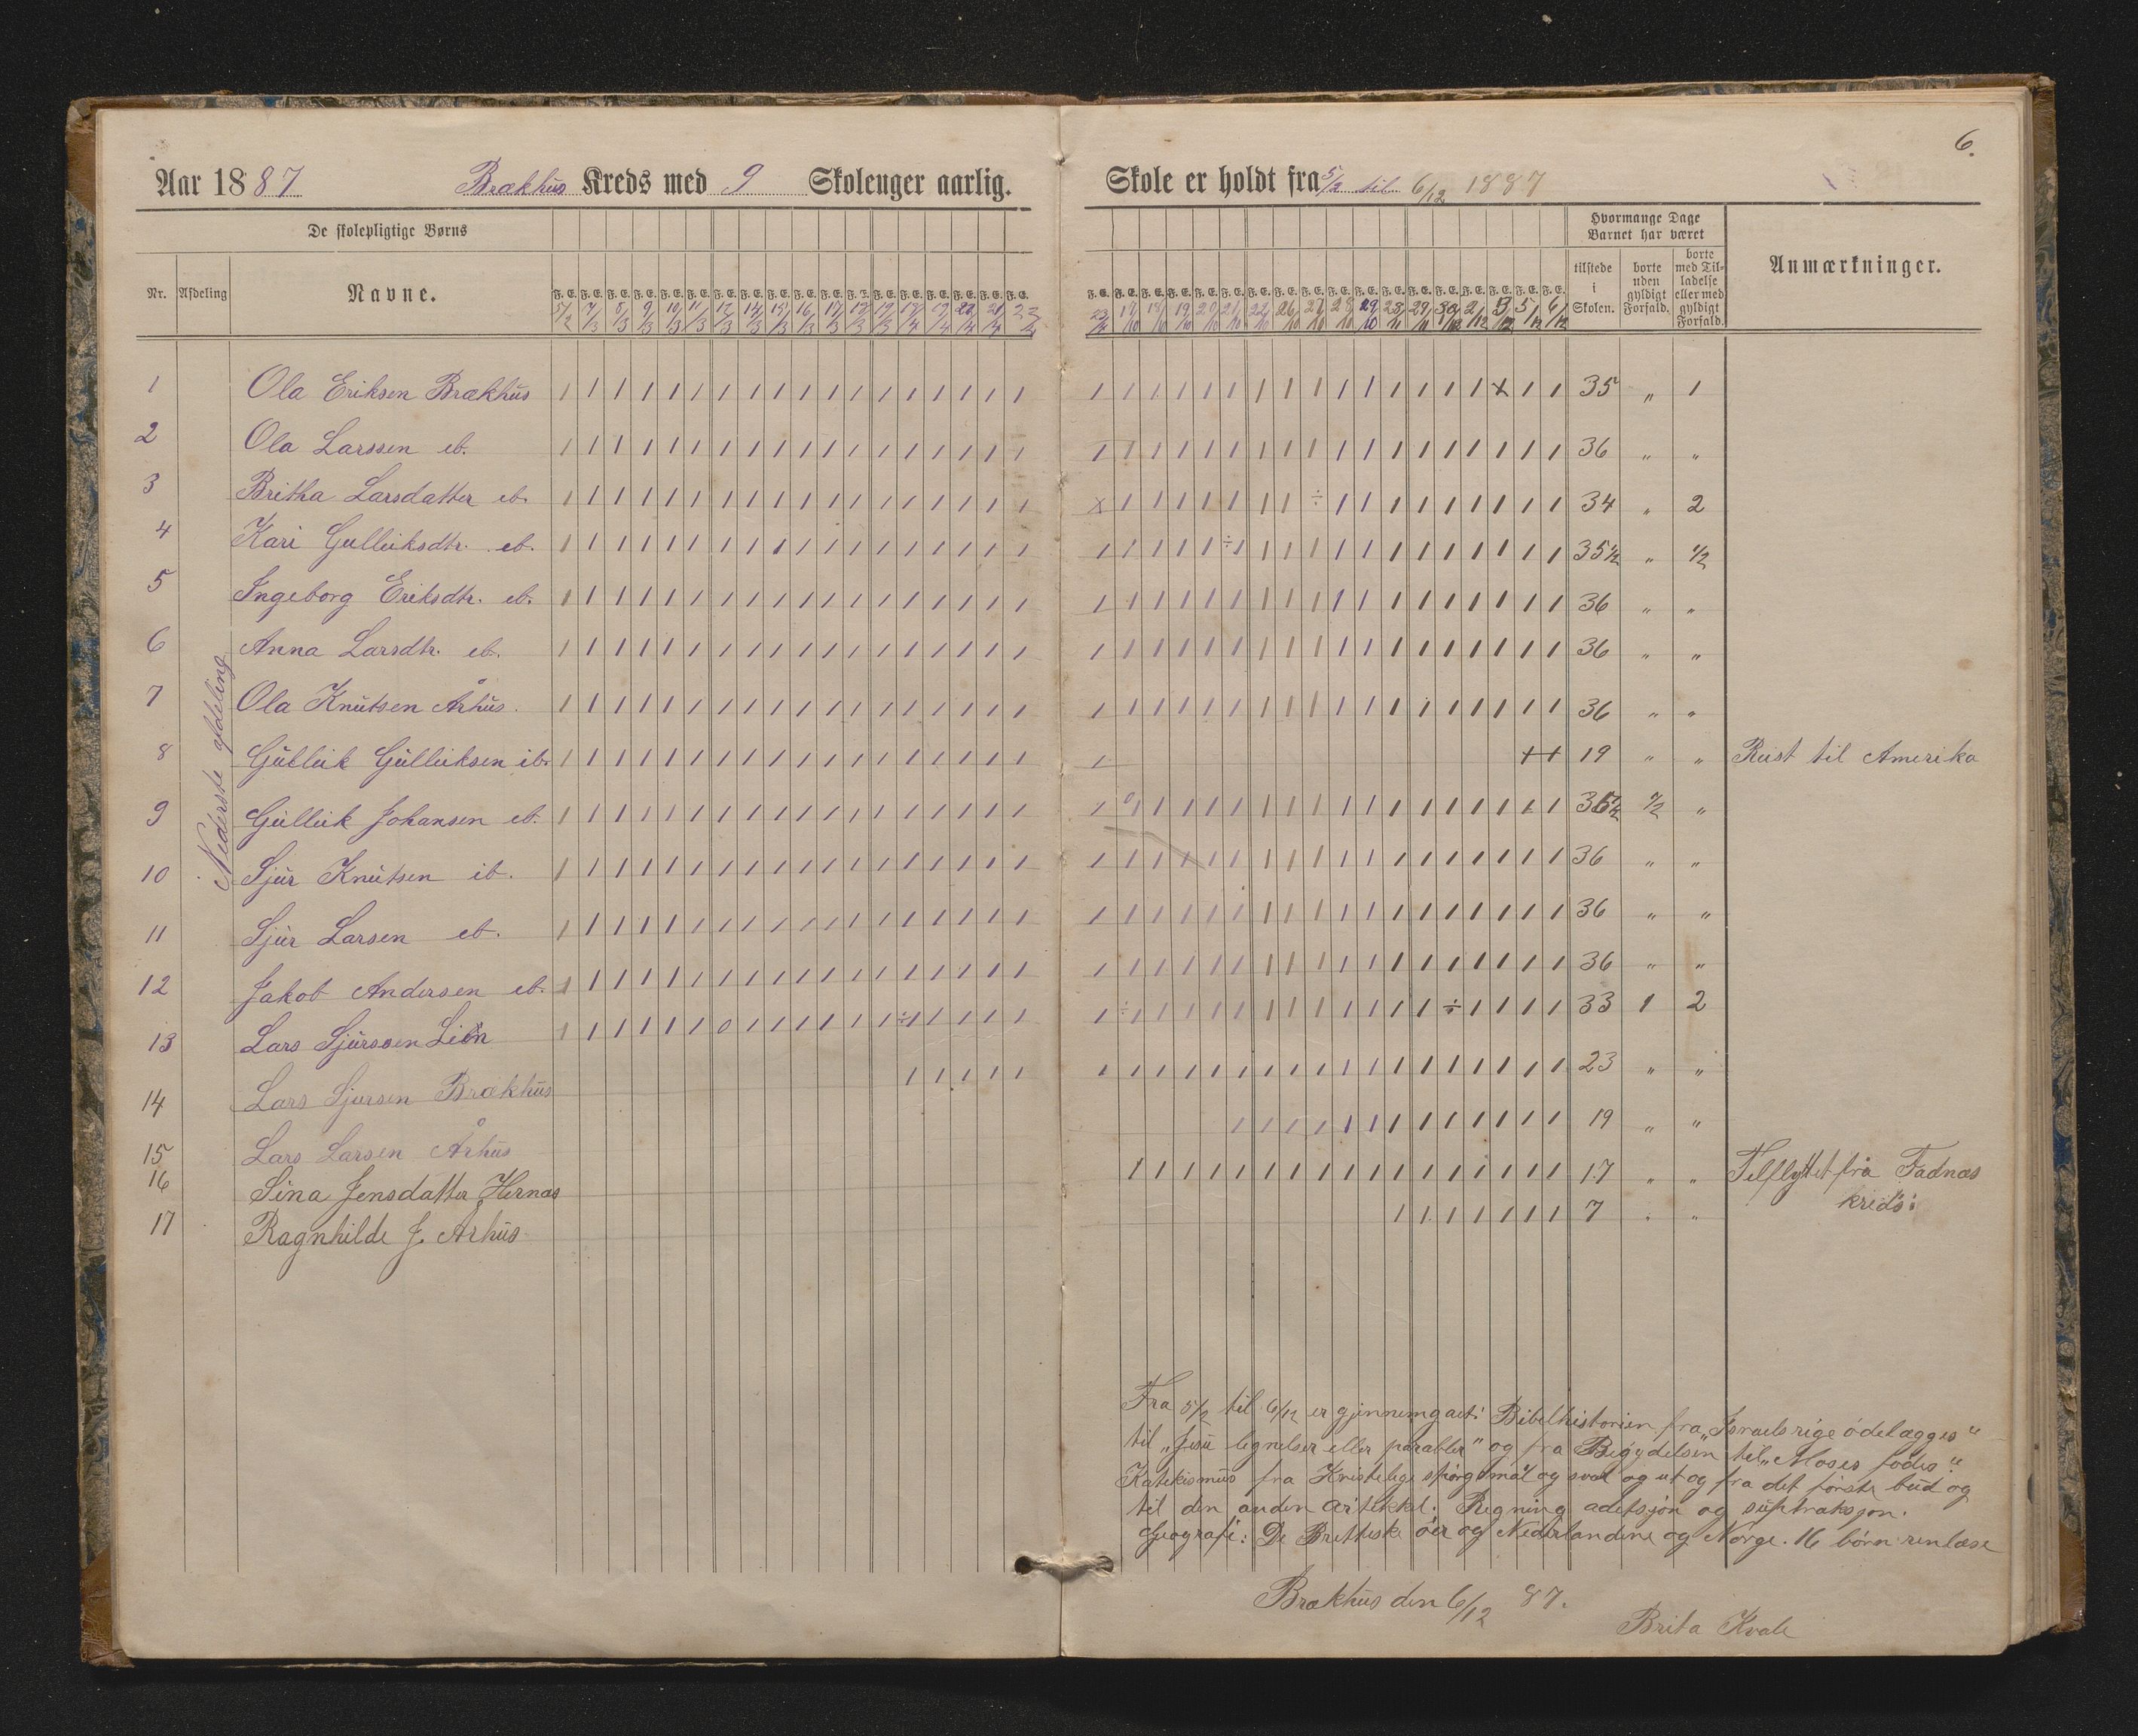 6.
Aar 1887 Brækhus Kreds med 9 Skoleuger aarlig. Skole er holdt fra 5/2 til 6/12 1887
De skolepligtige Børns
Hvormange Dage Barnet har været
Nr. Afdeling Navne. F. E. F. E. F. E. F. E. F. E. F. E. F. E. F. E. F. E. F. E. F. E. F. E. F. E. F. E. F. E. F. E. F. E. F. E.
tilstede i Skolen. borte uden gyldigt Forfald. borte med Tilladelse eller med gyldigt Forfald. Anmærkninger.
Nederste afdeling
1 Ola Eriksen Brækhus 35 „ 1
2 Ola Larssen ib. 36 „ „
3 Britha Larsdatter ib. 34 „ 2
4 Kari Gulleiksdtr. ib. 35 1/2 „ 1/2
5 Ingeborg Eriksdtr. ib. 36 „ „
6 Anna Larsdtr. ib. 36 „ „
7 Ola Knutsen Århus. 36 „ „
8 Gulleik Gulleiksen ib. 19 „ „ Reist til Amerika
9 Gulleik Johansen ib. 35 1/2 1/2 „
10 Sjur Knutsen ib. 36 „ „
11 Sjur Larsen ib. 36 „ „
12 Jakob Andersen ib. 36 „ „
13 Lars Sjurssen Lien 33 1 2
14 Lars Sjursen Brækhus 23 „ „
15 Lars Larsen Århus 19 „ „
16 Sina Jensdatter Hernæs 17 „ „ Tilflyttet fra Fadnæs kreds.
17 Ragnhilde J. Århus 7 „ „
Fra 5/2 til 6/12 er gjennemgaet: Bibelhistorien fra „Israels rige ödelægges“
til „Jesu lignelser eller parabler“ og fra Begydelsen til „Moses födes“.
Katekismus fra Kristelige spörgsmål og svar og ut og fra det förste bud og
til den anden artikkel. Regning adetsjon og suptraksjon.
Geografi: De Brittiske öer og Nederlandene og Norge. 16 börn renlæse
Brækhus den 6/12 87.
Brita Kvale